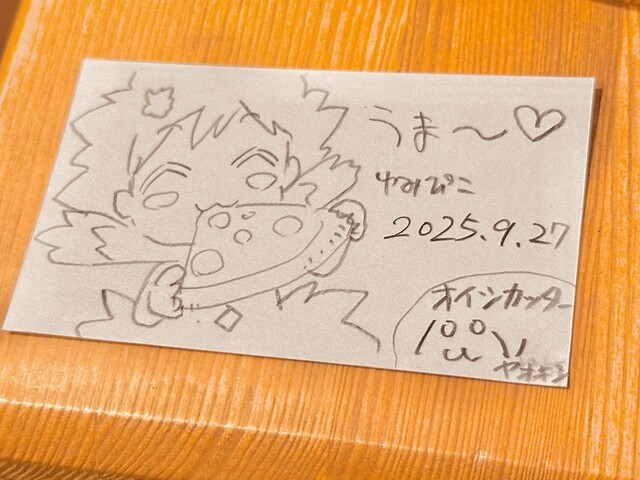 うま〜♡
やみぴこ
2025.9.27
オイシカッター
ヤオキン